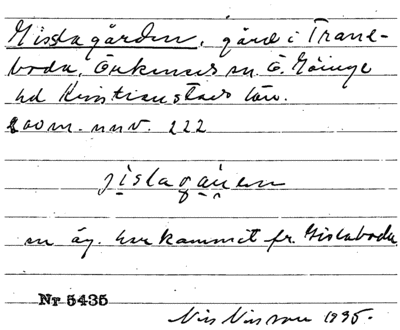 Gisslagården, gård i Trane-
boda, Örkeneds sn. Ö. Göinge
hd Kristianstads län.
200 m. nnv. 222
jislagáꞃen
en äg. har kommit fr. Gislaboda
Nr 5435
Nils Nilsson 1935.